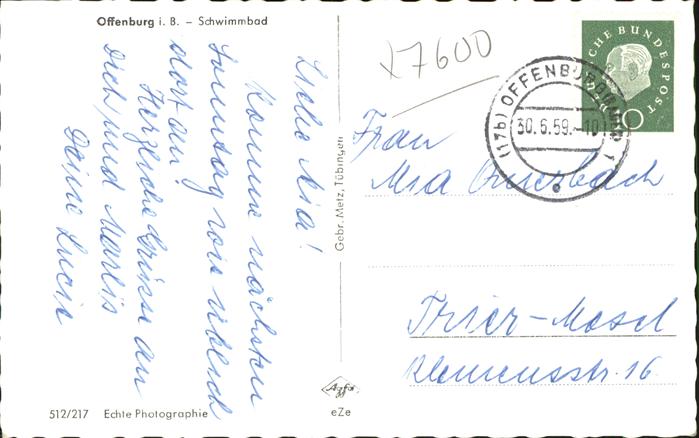 Offenburg i. B. – Schwimmbad
Liebe Mia!
Komme nächsten
Sonntag wie üblich
dort an.
Herzliche Grüsse an
Dich und Marlis
Deine Lucie
512/217 Echte Photographie
Gebr. Metz, Tübingen
Agfa
eZe
x7600
DEUTSCHE BUNDESPOST
10
(17b) OFFENBURG
30.6.59.-10
1
Frau
Mia
Trier-Mosel
Klemensstr. 16.